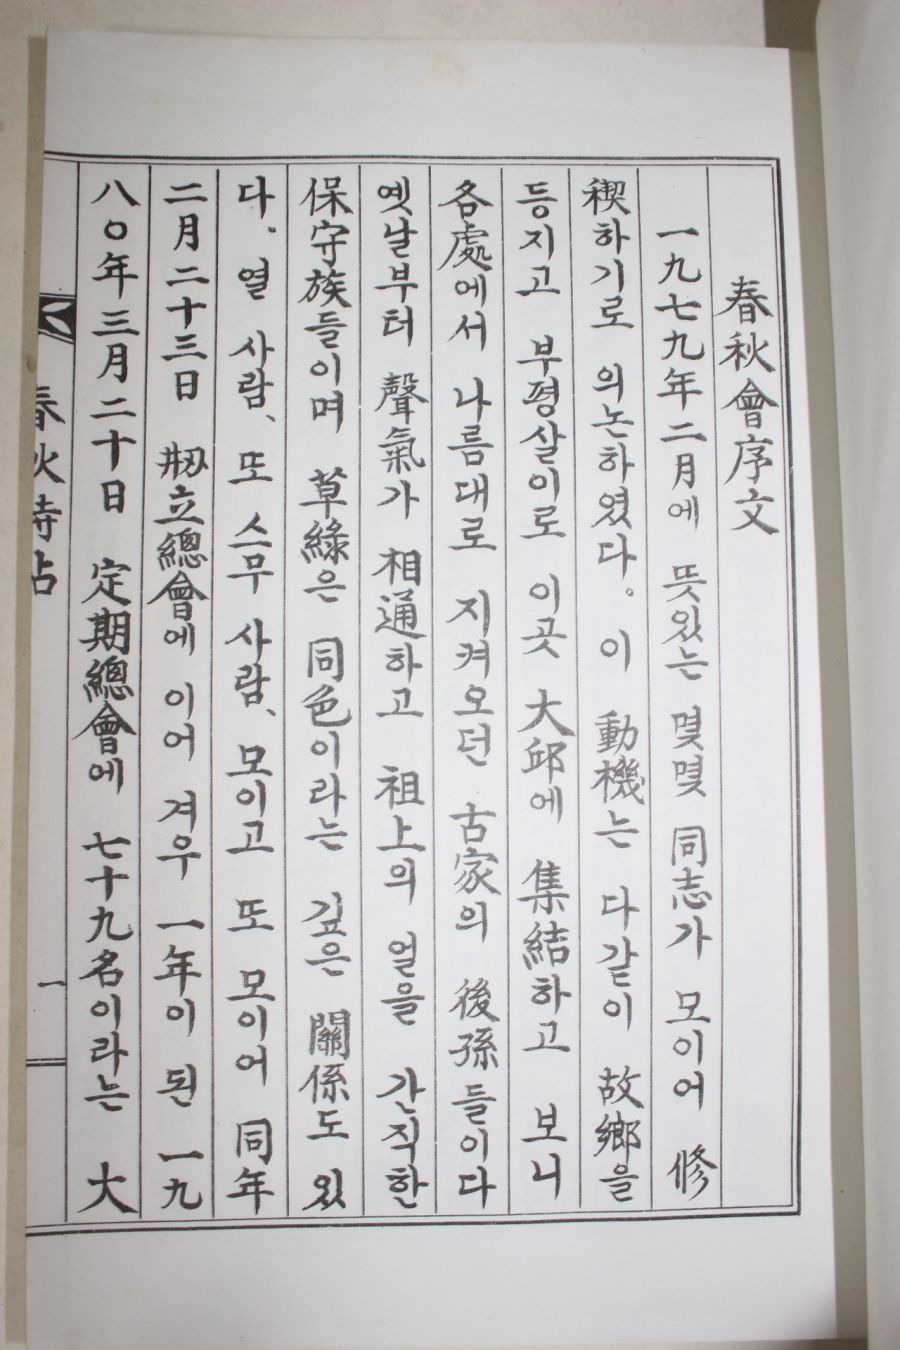 春秋會序文
一九七九年二月에 뜻있는 몇몇 同志가 모이어 修
稧하기로 의논하였다. 이 動機는 다같이 故鄕을
등지고 부평살이로 이곳 大邱에 集結하고 보니
各處에서 나름대로 지켜오던 古家의 後孫들이다
옛날부터 聲氣가 相通하고 祖上의 얼을 간직한
保守族들이며 草綠은 同色이라는 깊은 關係도 있
다. 열 사람、또 스무 사람、모이고 또 모이어 同年
二月二十三日 刱立總會에 이어 겨우 一年이 된 一九
八○年三月二十日 定期總會에 七十九名이라는 大
春秋詩帖 一